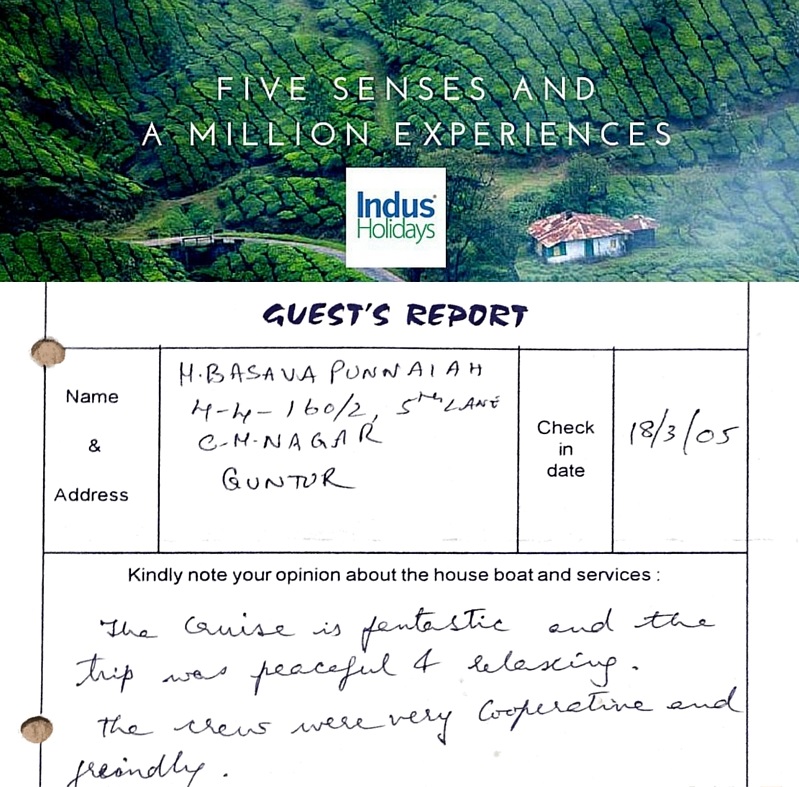 FIVE SENSES AND
A MILLION EXPERIENCES
Indus®
Holidays
GUEST'S REPORT
Name
&
Address
H. BASAVA PUNNAIAH
4-4-160/2, 5th LANE
C.M. NAGAR
GUNTUR
Check
in
date
18/3/05
Kindly note your opinion about the house boat and services :
The cruise is fentastic and the
trip was peaceful & relaxing.
The crew were very Cooperative and
freindly.